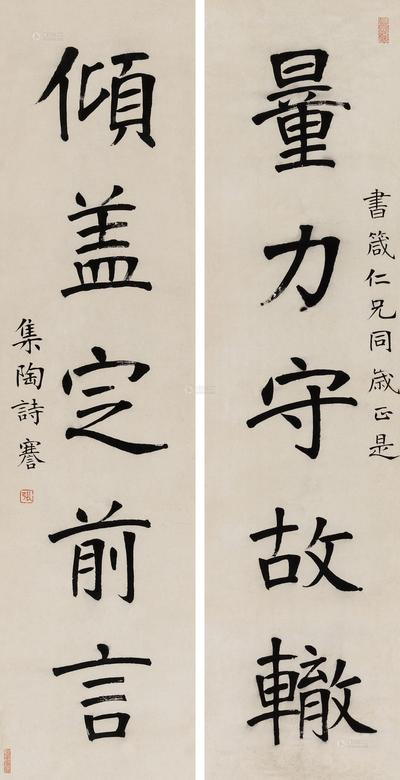 量力守故轍
書箴仁兄同歲正是
傾盖定前言
集陶詩謇